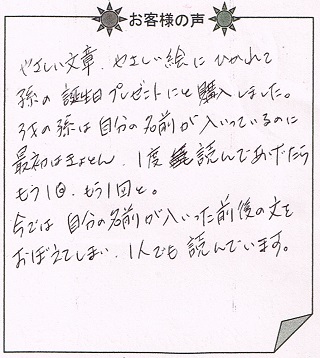 お客様の声
やさしい文章、やさしい絵にひかれて
孫の誕生日プレゼントにと購入しました。
3才の孫は自分の名前が入いっているのに
最初はきょとん、1度読んであげたら
もう1回、もう1回と。
今では自分の名前が入いった前後の文を
おぼえてしまい、1人でも読んでいます。